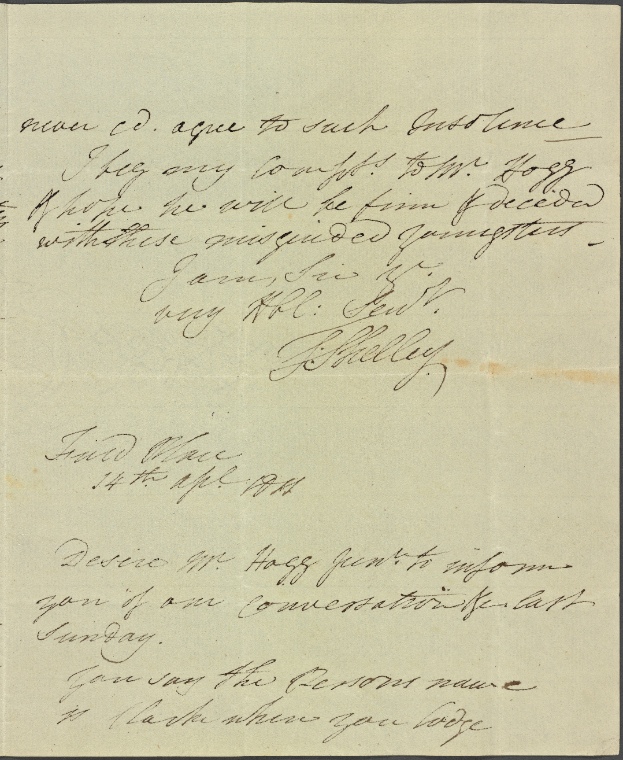 never cd. agree to such Insolence
I beg my Compts. to Mr. Hogg
& hope he will be firm & decided
with these misguided youngsters
I am, Sir Yr.
very Hble: Servt.
T. Shelley
Field Place
14th Apl. 1811
Desire Mr. Hogg Junr. to inform
you of our Conversation &c last
Sunday.
You say the Persons name
is Clarke where you lodge